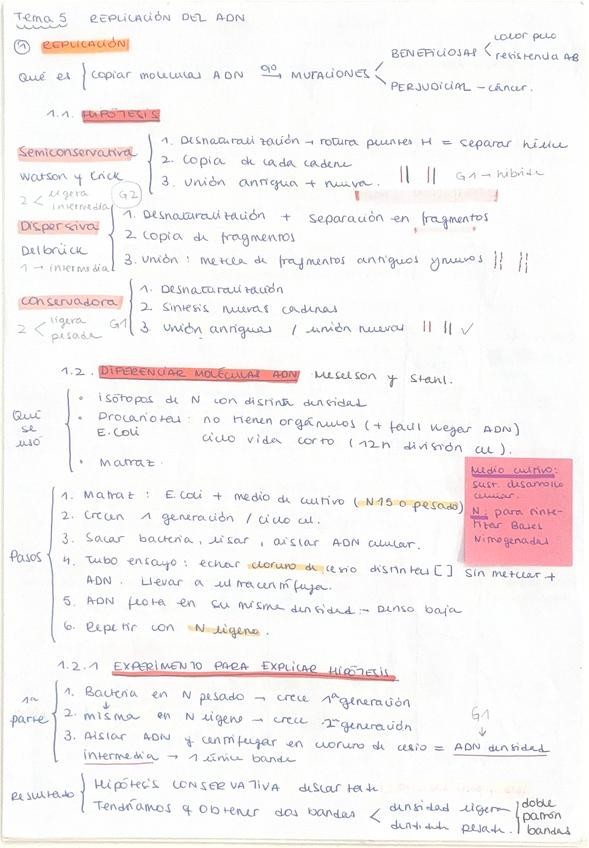 Tema 5 REPLICACIÓN DEL ADN
① REPLICACIÓN
Qué es { copiar moléculas ADN → MUTACIONES < BENEFICIOSAS < color pelo
resistencia AB
PERJUDICIAL - cáncer.
1.1. HIPÓTESIS
Semiconservativa
Watson y Crick
2 < ligera
intermedia
G2
1. Desnaturalización → rotura puentes H = separar hélice
2. Copia de cada cadena
3. Unión antigua + nueva. G1 → híbrida
Dispersiva
Delbrück
1 → intermedia
1. Desnaturalización + separación en fragmentos
2. Copia de fragmentos
3. Unión: mezcla de fragmentos antiguos y nuevos
Conservadora
2 < ligera
pesada
G1
1. Desnaturalización
2. Síntesis nuevas cadenas
3. Unión antiguas / unión nuevas ✓
1.2. DIFERENCIAR MOLÉCULAS ADN Meselson y Stahl.
Qué
se
usó
• isótopos de N con distinta densidad
• Procariotas: no tienen orgánulos (+ fácil llegar ADN)
E.Coli ciclo vida corto (12h división cel).
• Matraz.
Medio cultivo:
sust. desarrollo
celular.
N: para sinte-
tizar Bases
Nitrogenadas
Pasos
1. Matraz: E.Coli + medio de cultivo (N15 o pesado)
2. Crecen 1 generación / ciclo cel.
3. Sacar bacteria, lisar, aislar ADN celular.
4. Tubo ensayo: echar cloruro de cesio distintas [ ] sin mezclar +
ADN. Llevar a ultracentrífuga.
5. ADN flota en su misma densidad → Denso baja
6. Repetir con N ligero.
1.2.1 EXPERIMENTO PARA EXPLICAR HIPÓTESIS
1ª
parte
1. Bacteria en N pesado → crece 1ª generación
2. misma en N ligero → crece 2ª generación
G1
3. Aislar ADN y centrifugar en cloruro de cesio = ADN densidad
intermedia → 1 única banda
Resultado
Hipótesis CONSERVATIVA descartada
Tendríamos q obtener dos bandas < densidad ligera
densidad pesada.
doble
patrón
bandas